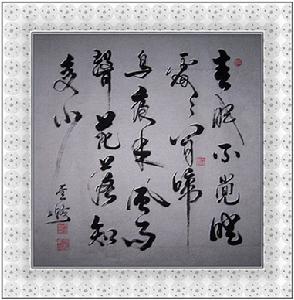 春眠不覺曉
處々聞啼
鳥夜来風雨
聲花落知
多少